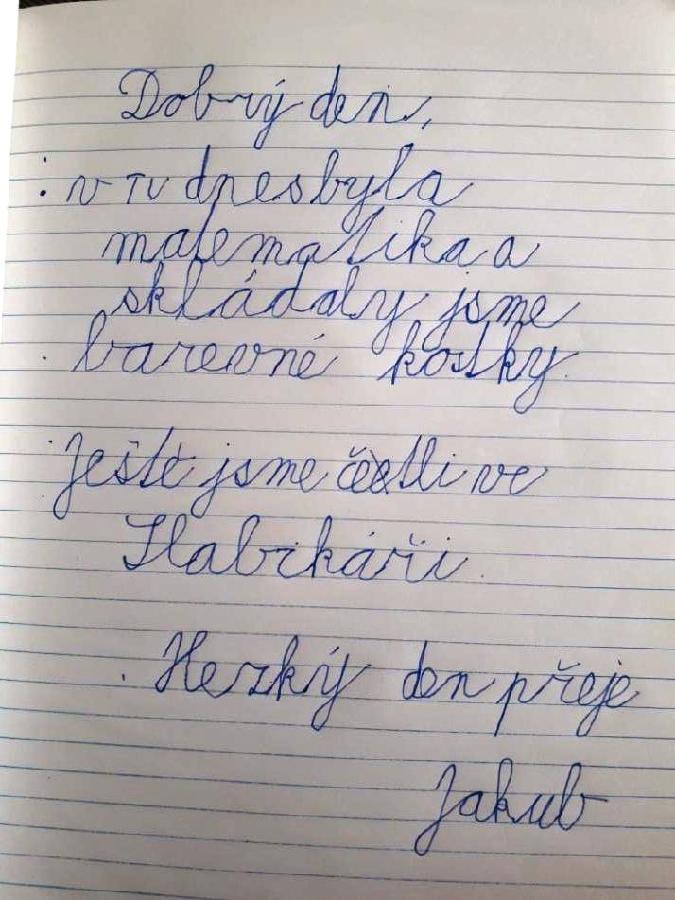 Dobrý den,
v TV dnes byla
matematika a
skládaly jsme
barevné kostky.
Ještě jsme četli ve
Slabikáři.
Hezký den přeje
Jakub